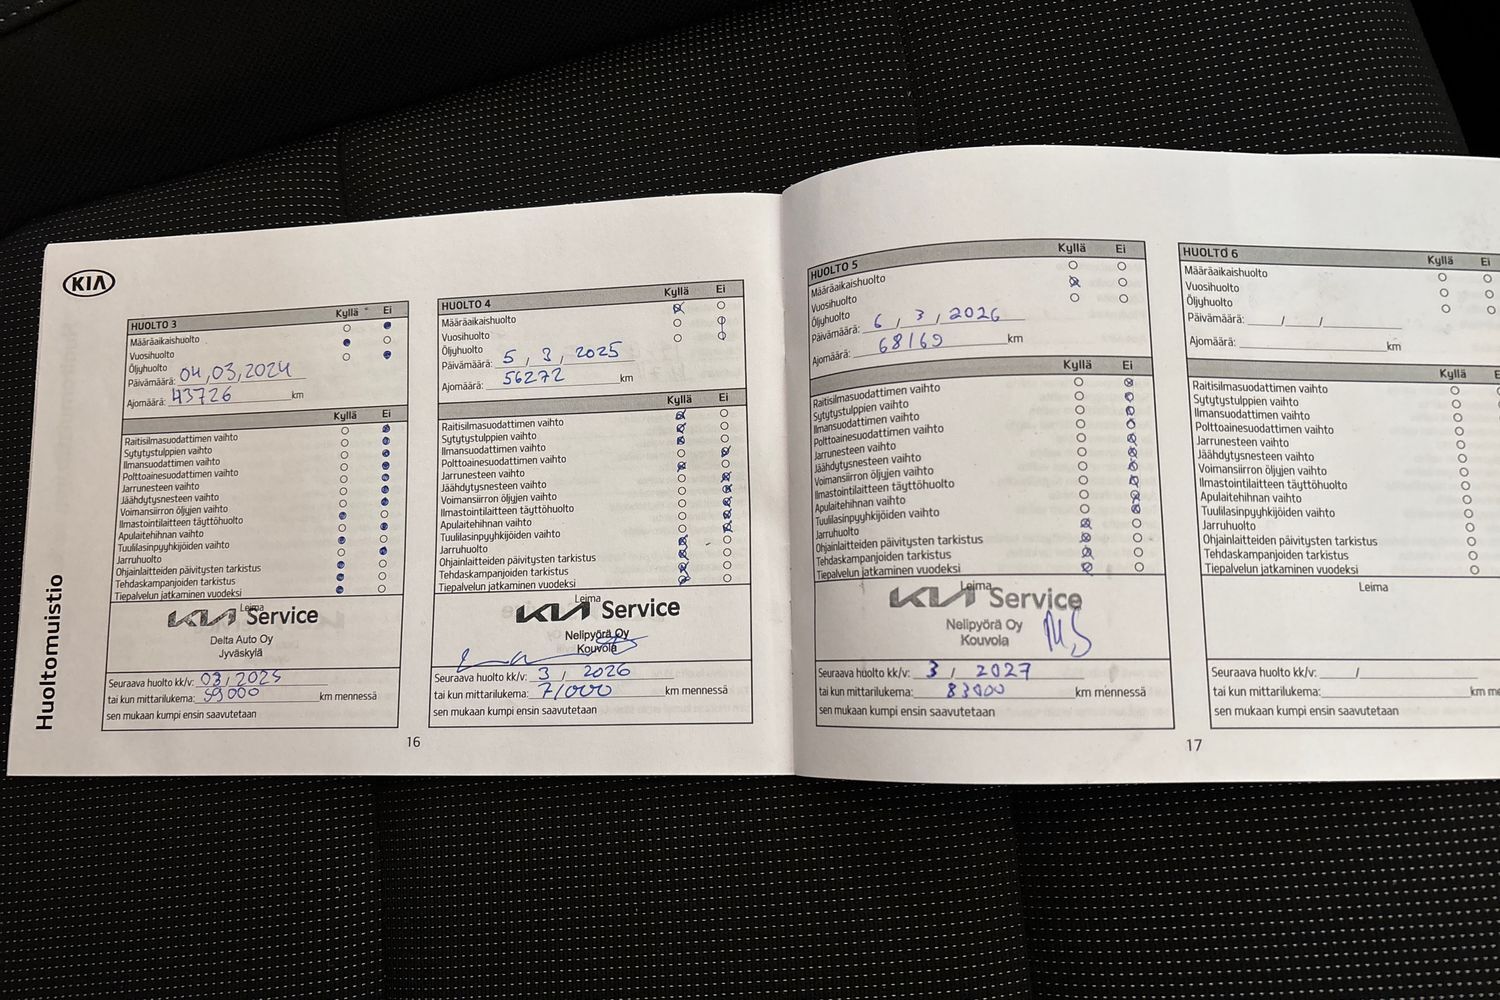 KIA
Huoltomuistio
HUOLTO 3 Kyllä Ei
Määräaikaishuolto
Vuosihuolto
Öljyhuolto
Päivämäärä: 04,03,2024
Ajomäärä: 43726 km
Kyllä Ei
Raitisilmasuodattimen vaihto
Sytytystulppien vaihto
Ilmansuodattimen vaihto
Polttoainesuodattimen vaihto
Jarrunesteen vaihto
Jäähdytysnesteen vaihto
Voimansiirron öljyjen vaihto
Ilmastointilaitteen täyttöhuolto
Apulaitehihnan vaihto
Tuulilasinpyyhkijöiden vaihto
Jarruhuolto
Ohjainlaitteiden päivitysten tarkistus
Tehdaskampanjoiden tarkistus
Tiepalvelun jatkaminen vuodeksi
Leima
KIA Service
Delta Auto Oy
Jyväskylä
Seuraava huolto kk/v: 03, 2025
tai kun mittarilukema: 59000 km mennessä
sen mukaan kumpi ensin saavutetaan
HUOLTO 4 Kyllä Ei
Määräaikaishuolto
Vuosihuolto
Öljyhuolto
Päivämäärä: 5 , 3 , 2025
Ajomäärä: 56272 km
Kyllä Ei
Raitisilmasuodattimen vaihto
Sytytystulppien vaihto
Ilmansuodattimen vaihto
Polttoainesuodattimen vaihto
Jarrunesteen vaihto
Jäähdytysnesteen vaihto
Voimansiirron öljyjen vaihto
Ilmastointilaitteen täyttöhuolto
Apulaitehihnan vaihto
Tuulilasinpyyhkijöiden vaihto
Jarruhuolto
Ohjainlaitteiden päivitysten tarkistus
Tehdaskampanjoiden tarkistus
Tiepalvelun jatkaminen vuodeksi
Leima
KIA Service
Nelipyörä Oy
Kouvola
Seuraava huolto kk/v: 3 / 2026
tai kun mittarilukema: 71000 km mennessä
sen mukaan kumpi ensin saavutetaan
16
HUOLTO 5 Kyllä Ei
Määräaikaishuolto
Vuosihuolto
Öljyhuolto
Päivämäärä: 6 , 3 , 2026
Ajomäärä: 68169 km
Kyllä Ei
Raitisilmasuodattimen vaihto
Sytytystulppien vaihto
Ilmansuodattimen vaihto
Polttoainesuodattimen vaihto
Jarrunesteen vaihto
Jäähdytysnesteen vaihto
Voimansiirron öljyjen vaihto
Ilmastointilaitteen täyttöhuolto
Apulaitehihnan vaihto
Tuulilasinpyyhkijöiden vaihto
Jarruhuolto
Ohjainlaitteiden päivitysten tarkistus
Tehdaskampanjoiden tarkistus
Tiepalvelun jatkaminen vuodeksi
Leima
KIA Service
Nelipyörä Oy
Kouvola
MS
Seuraava huolto kk/v: 3 / 2027
tai kun mittarilukema: 83000 km mennessä
sen mukaan kumpi ensin saavutetaan
HUOLTO 6 Kyllä Ei
Määräaikaishuolto
Vuosihuolto
Öljyhuolto
Päivämäärä: / /
Ajomäärä: km
Kyllä E
Raitisilmasuodattimen vaihto
Sytytystulppien vaihto
Ilmansuodattimen vaihto
Polttoainesuodattimen vaihto
Jarrunesteen vaihto
Jäähdytysnesteen vaihto
Voimansiirron öljyjen vaihto
Ilmastointilaitteen täyttöhuolto
Apulaitehihnan vaihto
Tuulilasinpyyhkijöiden vaihto
Jarruhuolto
Ohjainlaitteiden päivitysten tarkistus
Tehdaskampanjoiden tarkistus
Tiepalvelun jatkaminen vuodeksi
Leima
Seuraava huolto kk/v: /
tai kun mittarilukema: km me
sen mukaan kumpi ensin saavutetaan
17